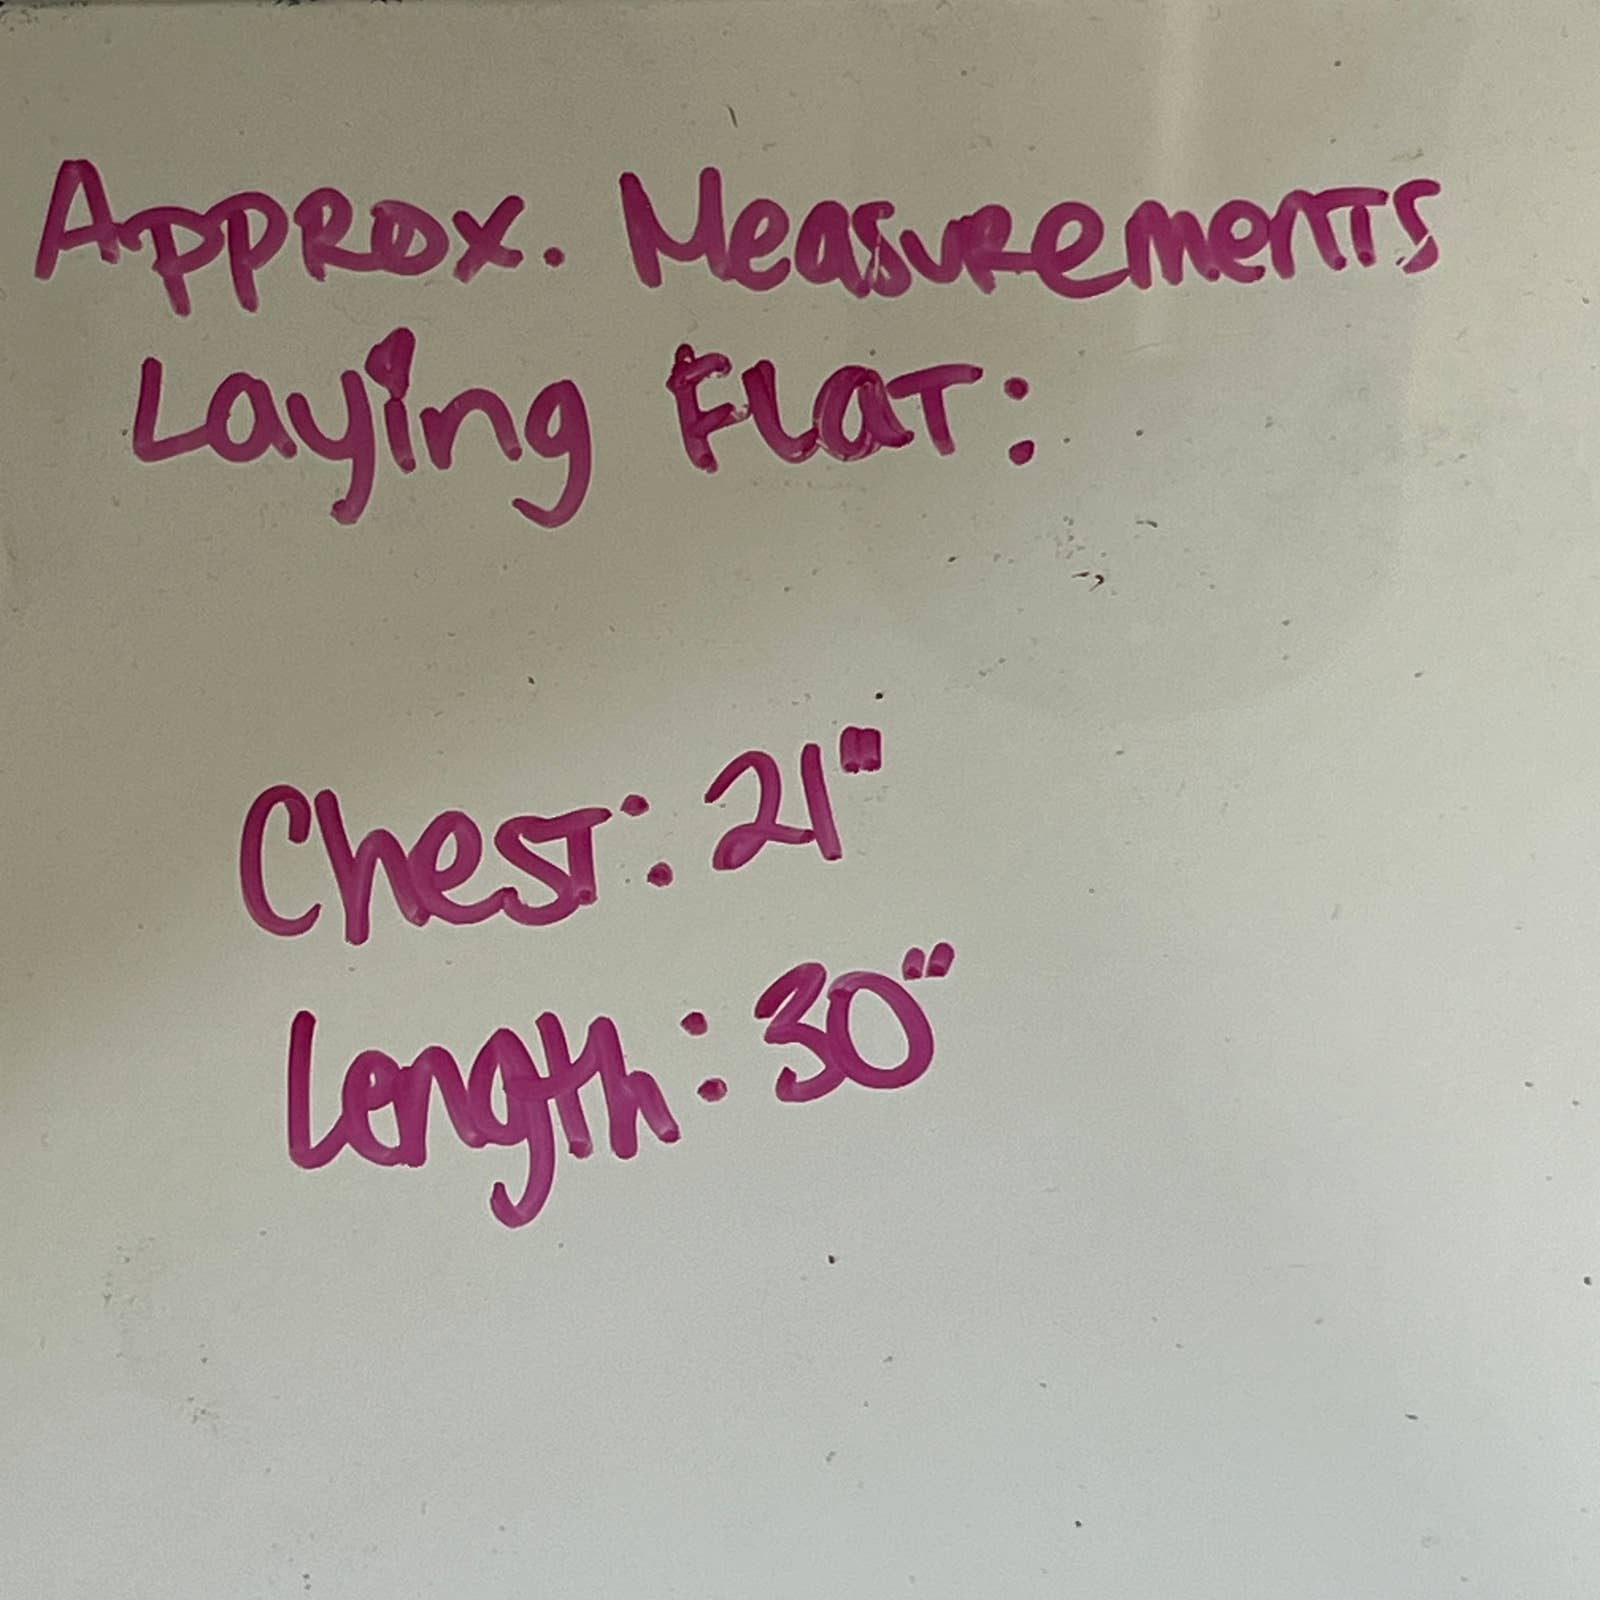 Approx. Measurements
Laying Flat:
Chest: 21"
Length: 30"